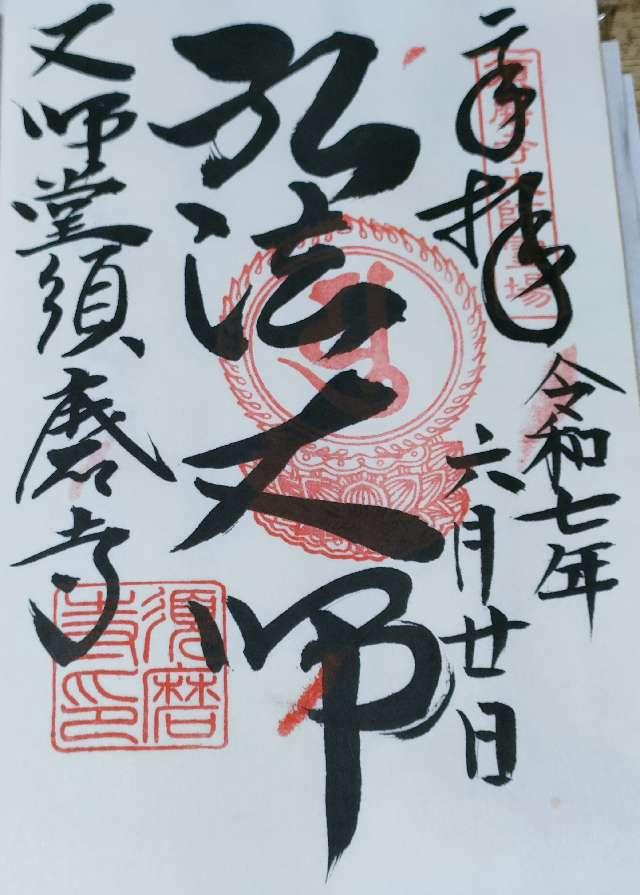 奉拝
須磨寺大師霊場
令和七年
六月廿日
弘法大師
大師堂須磨寺
須磨寺印